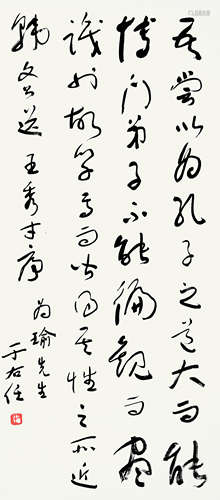 吾嘗以為孔子之道大而能
博門弟子不能徧觀而盡
識也故學焉而皆得其性之所近
韓文公送王秀才序
為瑜先生
于右任